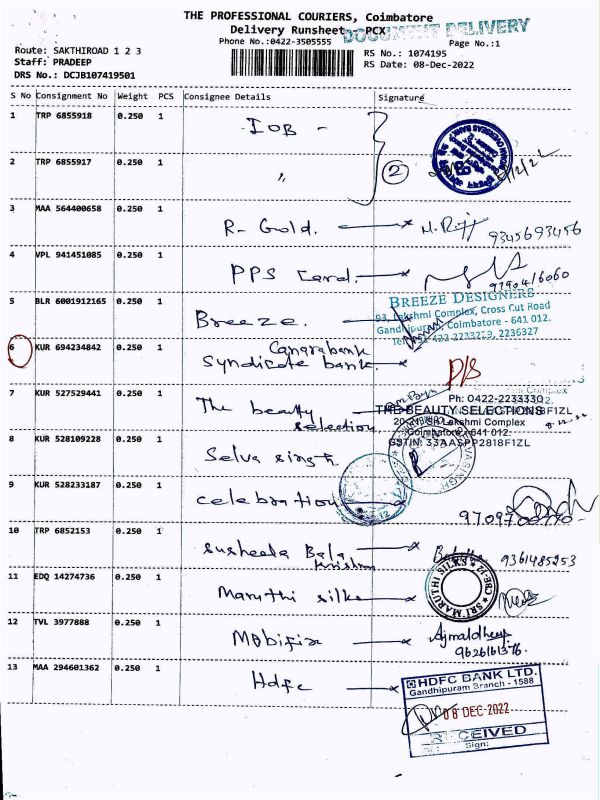 THE PROFESSIONAL COURIERS, Coimbatore
Delivery Runsheet - PCX
DOCUMENT DELIVERY
Phone No.:0422-3505555
Page No.:1
Route: SAKTHIROAD 1 2 3
RS No.: 1074195
Staff: PRADEEP
RS Date: 08-Dec-2022
DRS No.: DCJB107419501
S No Consignment No Weight PCS Consignee Details Signature
1 TRP 6855918 0.250 1 IOB
2 TRP 6855917 0.250 1 〃
2
3 MAA 564400658 0.250 1 R- Gold. 9345693456
4 VPL 941451085 0.250 1 PPS Card. 9790416060
5 BLR 6001912165 0.250 1 Breeze.
BREEZE DESIGNERS
93, Lakshmi Complex, Cross Cut Road
Gandhipuram, Coimbatore - 641 012.
6 KUR 694234842 0.250 1 Canarabank
Syndicate bank.
D/S
7 KUR 527529441 0.250 1 The beauty
selection
Ph: 0422-2233330
THE BEAUTY SELECTIONS
Lakshmi Complex
Coimbatore - 641 012.
GSTIN: 33AASPP2818F1ZL
8 KUR 528109228 0.250 1 Selva singh
9 KUR 528233187 0.250 1 celebration
10 TRP 6852153 0.250 1 Susheela Bala
Krishna
9361485253
11 EDQ 14274736 0.250 1 Maruthi silks
SRI MARUTHI SILKS CBE-12
12 TVL 3977888 0.250 1 Mobifix
13 MAA 294601362 0.250 1 Hdfc
HDFC BANK LTD.
Gandhipuram Branch - 1588
08 DEC 2022
RECEIVED
Sign: